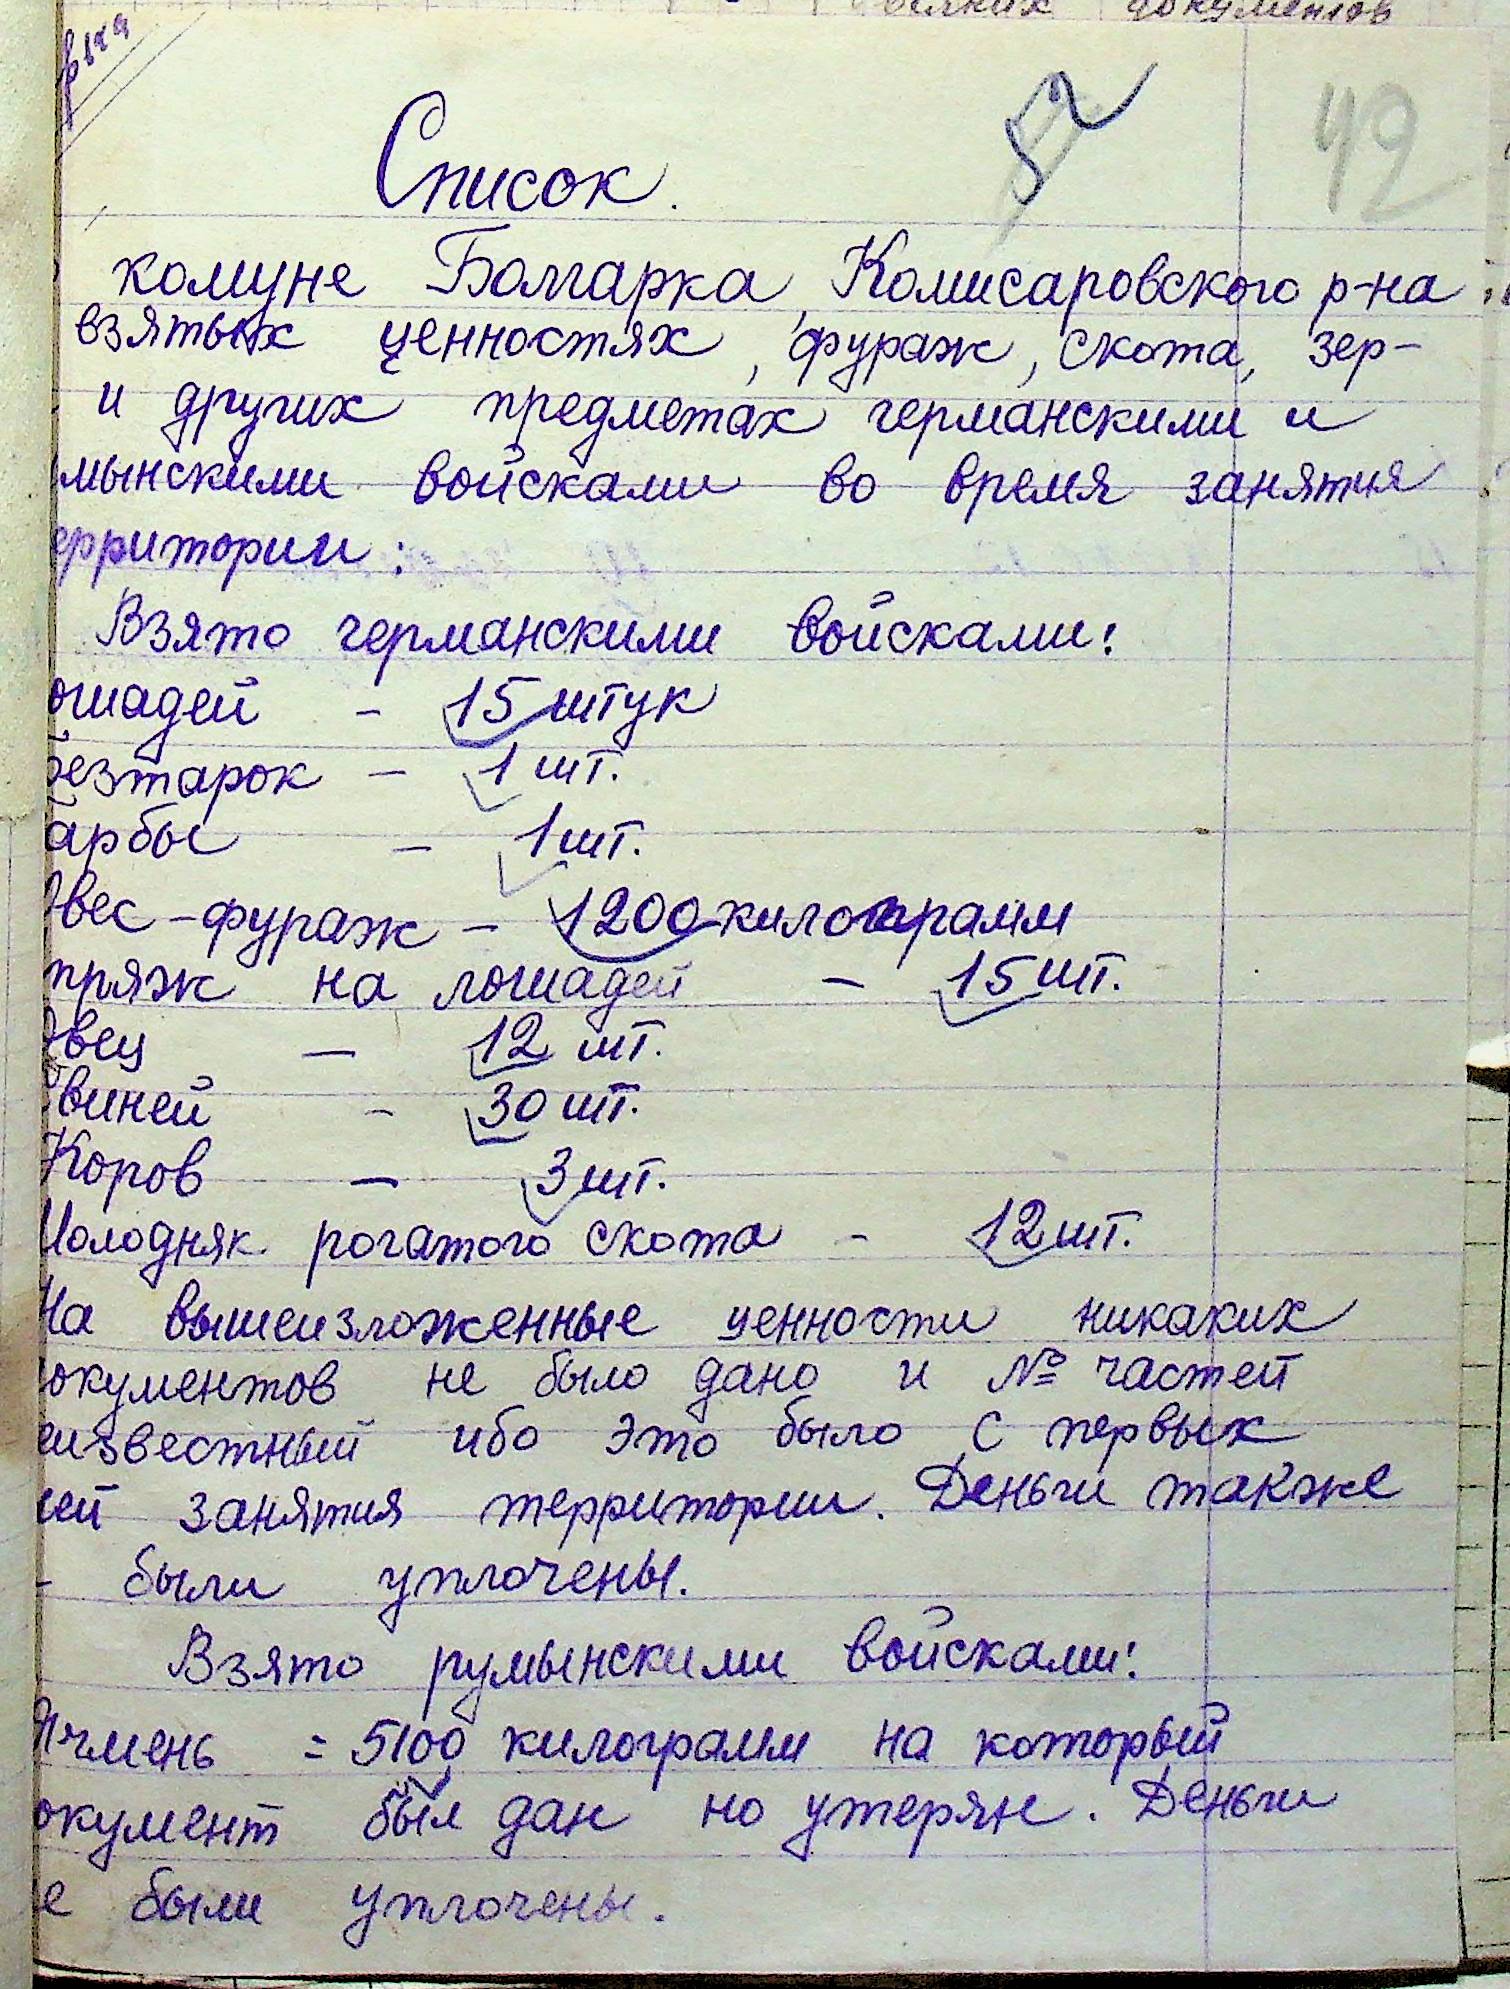 Список.
52
42
комуне Болгарка, Комисаровского р-на
взятых ценностях, фураж, скота, зер-
и других предметах германскими и
мынскими войсками во время занятия
ерритории:
Взято германскими войсками:
ошадей - 15 штук
безтарок - 1 шт.
арбы - 1 шт.
Овес-фураж - 1200 килограмм
пряж на лошадей - 15 шт.
Овец - 12 шт.
Свиней - 30 шт.
Коров - 3 шт.
Молодняк рогатого скота - 12 шт.
На вышеизложенные ценности никаких
окументов не было дано и № частей
еизвестный ибо это было с первых
ней занятия территории. Деньги также
- были уплочены.
Взято румынскими войсками:
Ячмень = 5100 килограмм на который
окумент был дан но утерян. Деньги
е были уплочены.